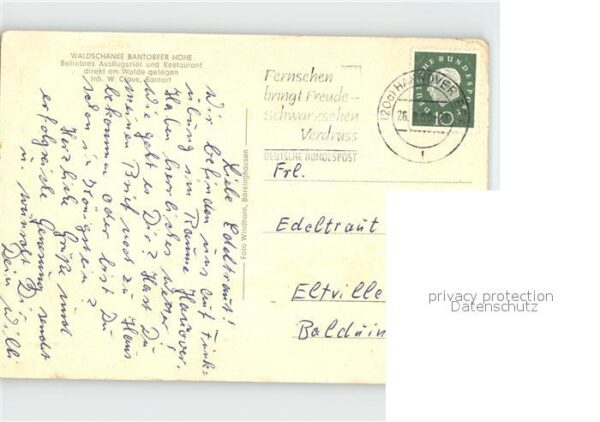 WALDSCHÄNKE BANTORFER HÖHE
Beliebtes Ausflugsziel und Restaurant
direkt am Walde gelegen
Inh. W. Claus, Bantorf
Liebe Edeltraut!
Wir befinden uns auf Funk-
übung im Raume Hannover.
Haben herrliches Wetter!
Wie geht es Dir? Hast Du
meinen Brief noch zu Haus
bekommen oder bist Du
schon in Königstein?
Herzliche Grüße und
erfolgreiche Genesung
wünscht Dir
Dein Willi
Foto Windhorn, Barsinghausen
Fernsehen
bringt Freude -
Schwarzsehen
Verdruss
DEUTSCHE BUNDESPOST
(20a) HANNOVER
DEUTSCHE BUNDESPOST
10
Frl.
Edeltraut
Eltville
Balduin
privacy protection
Datenschutz